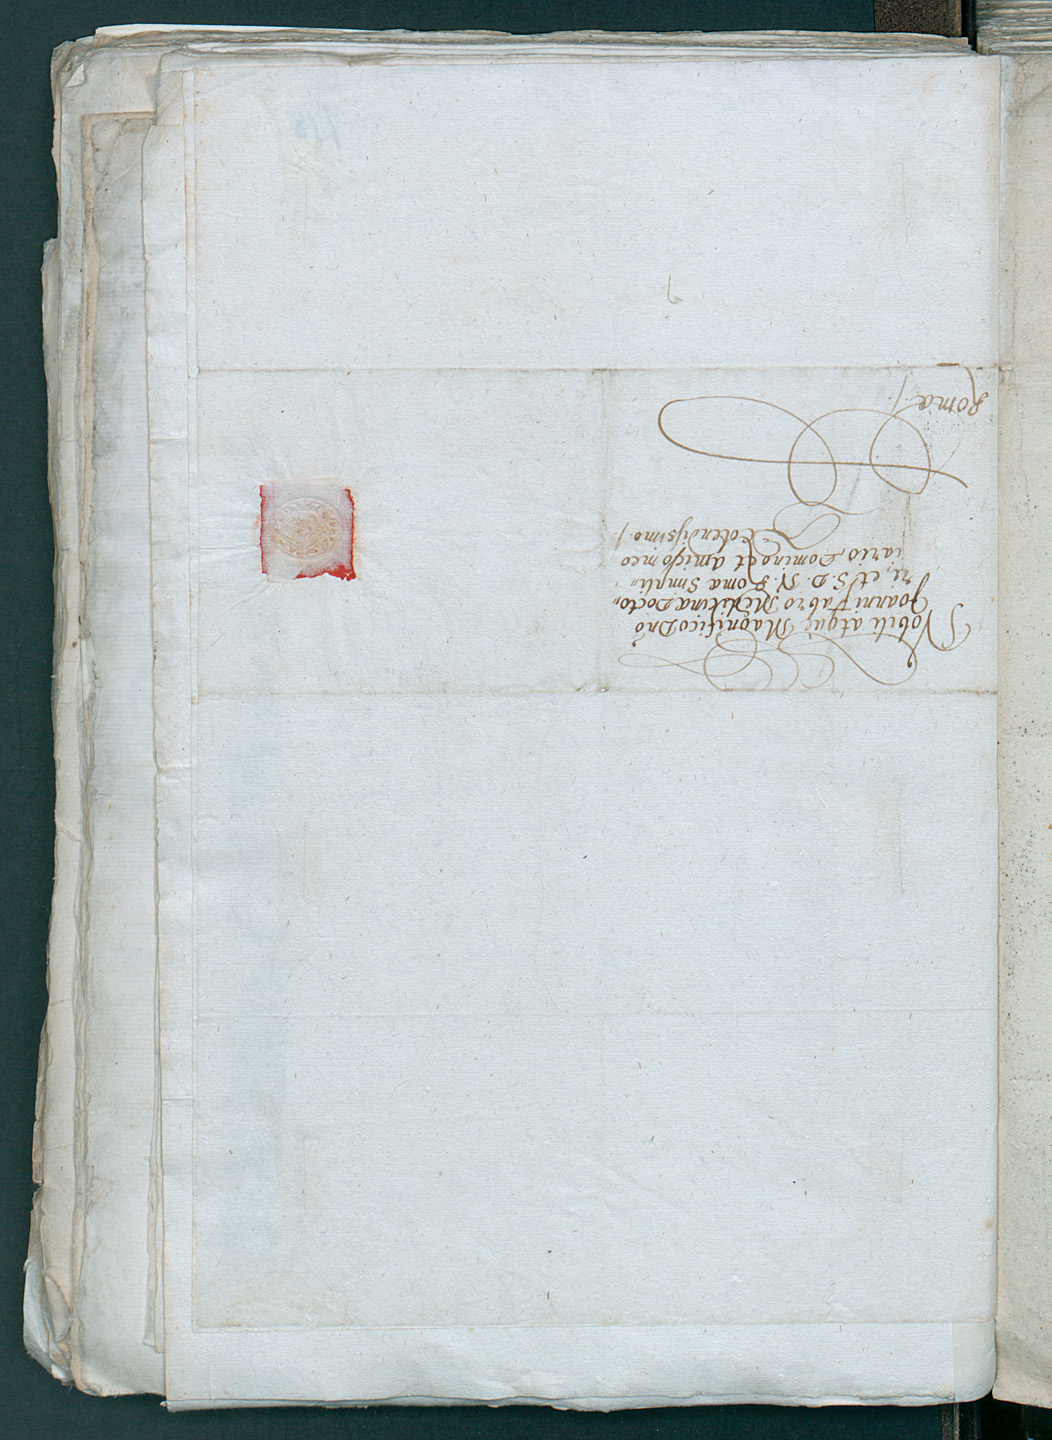 Nobili atque Magnifico Dno
Joanni Fabro Medicinae Docto„
ri, et S. D. N. Romae Simpli„
ciario Domino et amico meo
Colendissimo /.
Romae /.